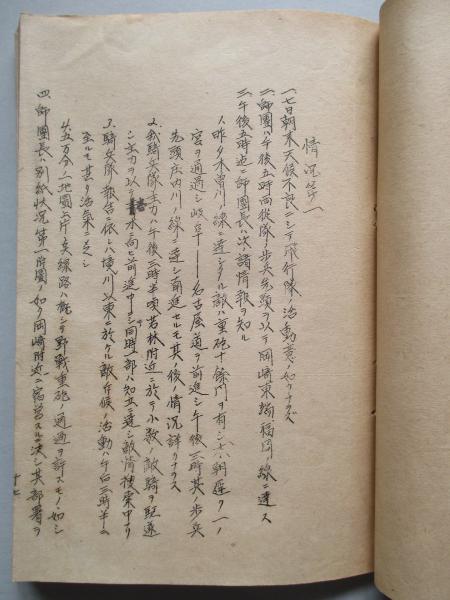 情況第一
一、七日朝来天候不良ニシテ飛行隊ノ活動意ノ如クナラズ
二、師團ハ午後五時両縦隊ノ歩兵先頭ヲ以テ岡崎東端福岡ノ線ニ達ス
三、午後五時迄ニ師團長ハ次ノ諸情報ヲ知ル
1、昨夕木曽川ノ線ニ達シタル敵ハ重砲十餘門ヲ有シ七八朝 一ノ
宮ヲ通過シ岐阜――名古屋道ヲ前進シ午後三時其ノ歩兵
先頭庄内川ノ線ニ達シ南進セルモ其ノ後ノ情況詳カナラズ
2、我騎兵隊主力ハ午後三時半頃若林附近ニ於テ小数ノ敵騎ヲ駆逐
シ主力ヲ以テ 木ニ向ヒ前進中ナリ同時一部ハ知立ニ達シ敵情捜索中ナリ
3、騎兵隊ノ報告ニ依レハ境川以東ニ於ケル敵斥候ノ活動ハ午后三時半ニ
至ルモ甚タ活氣ニ乏シ
4、五万分ノ一地圖上片実線路ハ概シテ野戦重砲ノ通過ヲ許スモノヽ如シ
四、師團長ハ別紙状況第一附圖ノ如ク岡崎附近ニ宿営スルニ決シ其部署ヲ
十七